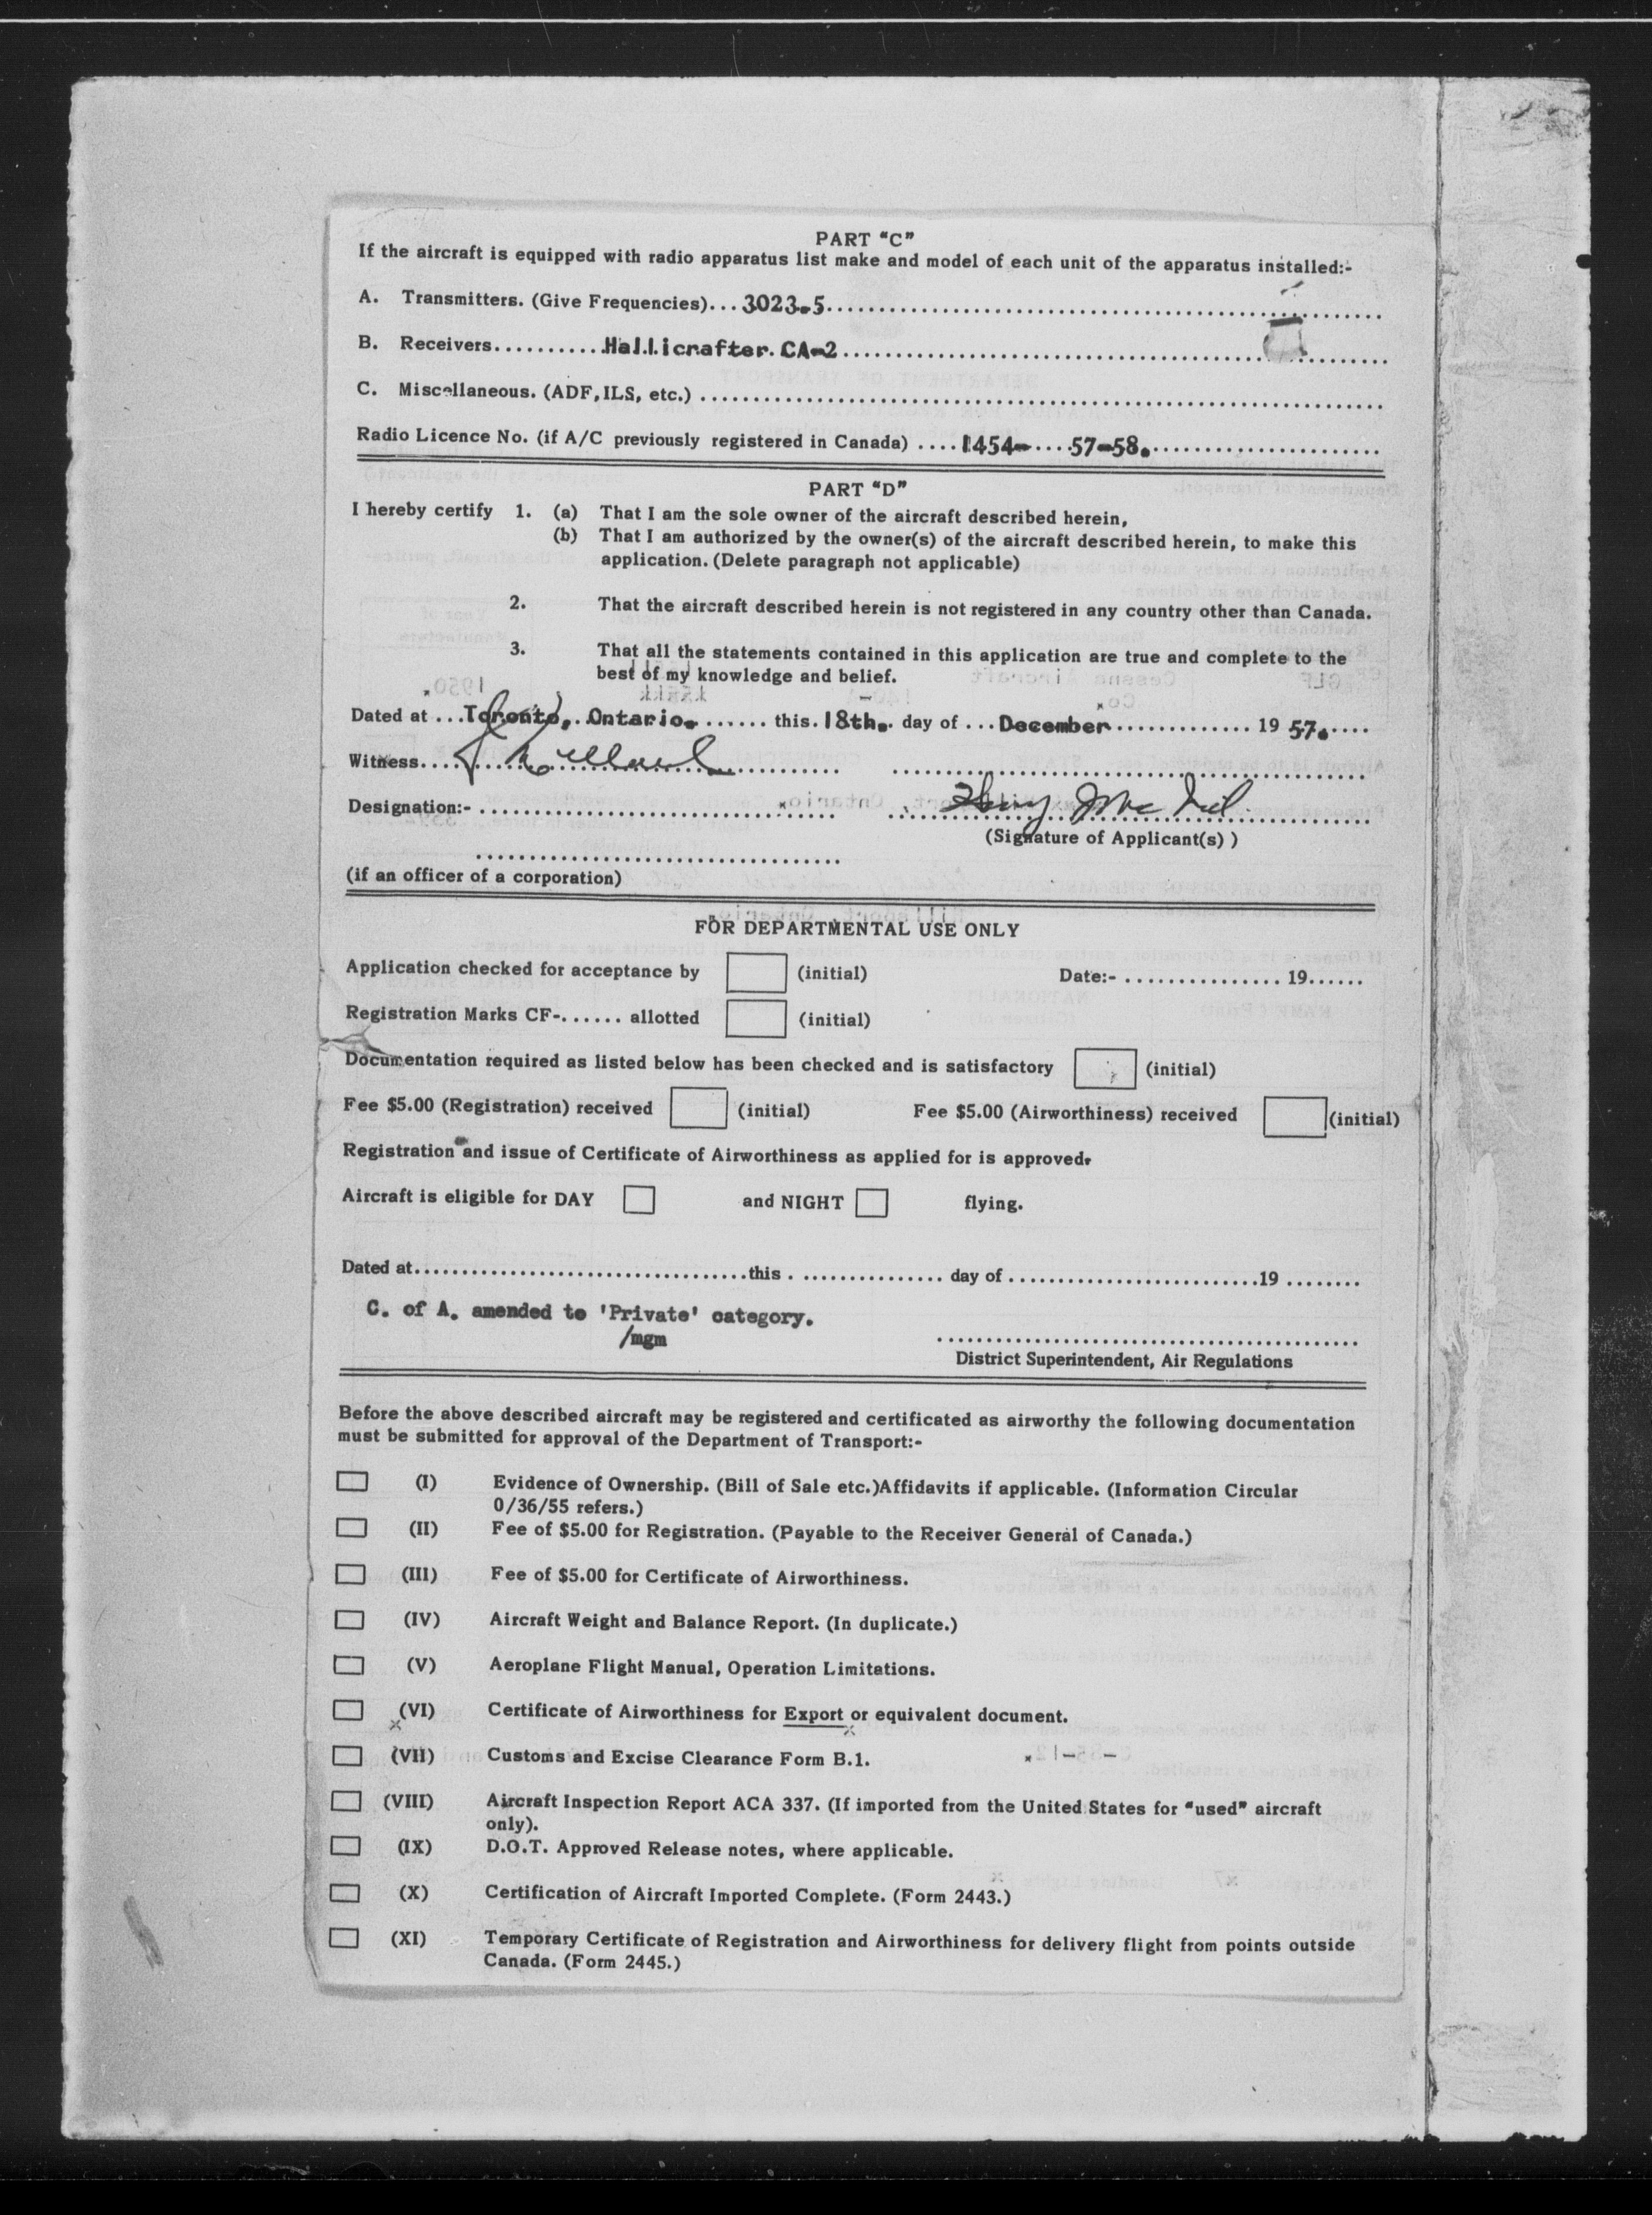 PART "C"
If the aircraft is equipped with radio apparatus list make and model of each unit of the apparatus installed:-
A. Transmitters. (Give Frequencies)...3023.5......
B. Receivers...........Hallicrafter CA-2......
C. Miscellaneous. (ADF, ILS, etc.) ......
Radio Licence No. (if A/C previously registered in Canada) ....1454-....57-58.......
PART "D"
I hereby certify 1. (a) That I am the sole owner of the aircraft described herein,
(b) That I am authorized by the owner(s) of the aircraft described herein, to make this
application. (Delete paragraph not applicable)
2. That the aircraft described herein is not registered in any country other than Canada.
3. That all the statements contained in this application are true and complete to the
best of my knowledge and belief.
Dated at ...Toronto, Ontario....... this.18th. day of ...December............. 19 57.....
Witness......
Designation:- ...... Henry
(Signature of Applicant(s) )
(if an officer of a corporation)
FOR DEPARTMENTAL USE ONLY
Application checked for acceptance by (initial) Date:- ................ 19......
Registration Marks CF-...... allotted (initial)
Documentation required as listed below has been checked and is satisfactory (initial)
Fee $5.00 (Registration) received (initial) Fee $5.00 (Airworthiness) received (initial)
Registration and issue of Certificate of Airworthiness as applied for is approved.
Aircraft is eligible for DAY and NIGHT flying.
Dated at......this ................ day of ......19 ........
C. of A. amended to 'Private' category.
/mgm
District Superintendent, Air Regulations
Before the above described aircraft may be registered and certificated as airworthy the following documentation
must be submitted for approval of the Department of Transport:-
(I) Evidence of Ownership. (Bill of Sale etc.)Affidavits if applicable. (Information Circular
0/36/55 refers.)
(II) Fee of $5.00 for Registration. (Payable to the Receiver General of Canada.)
(III) Fee of $5.00 for Certificate of Airworthiness.
(IV) Aircraft Weight and Balance Report. (In duplicate.)
(V) Aeroplane Flight Manual, Operation Limitations.
(VI) Certificate of Airworthiness for Export or equivalent document.
(VII) Customs and Excise Clearance Form B.1.
(VIII) Aircraft Inspection Report ACA 337. (If imported from the United States for "used" aircraft
only).
(IX) D.O.T. Approved Release notes, where applicable.
(X) Certification of Aircraft Imported Complete. (Form 2443.)
(XI) Temporary Certificate of Registration and Airworthiness for delivery flight from points outside
Canada. (Form 2445.)